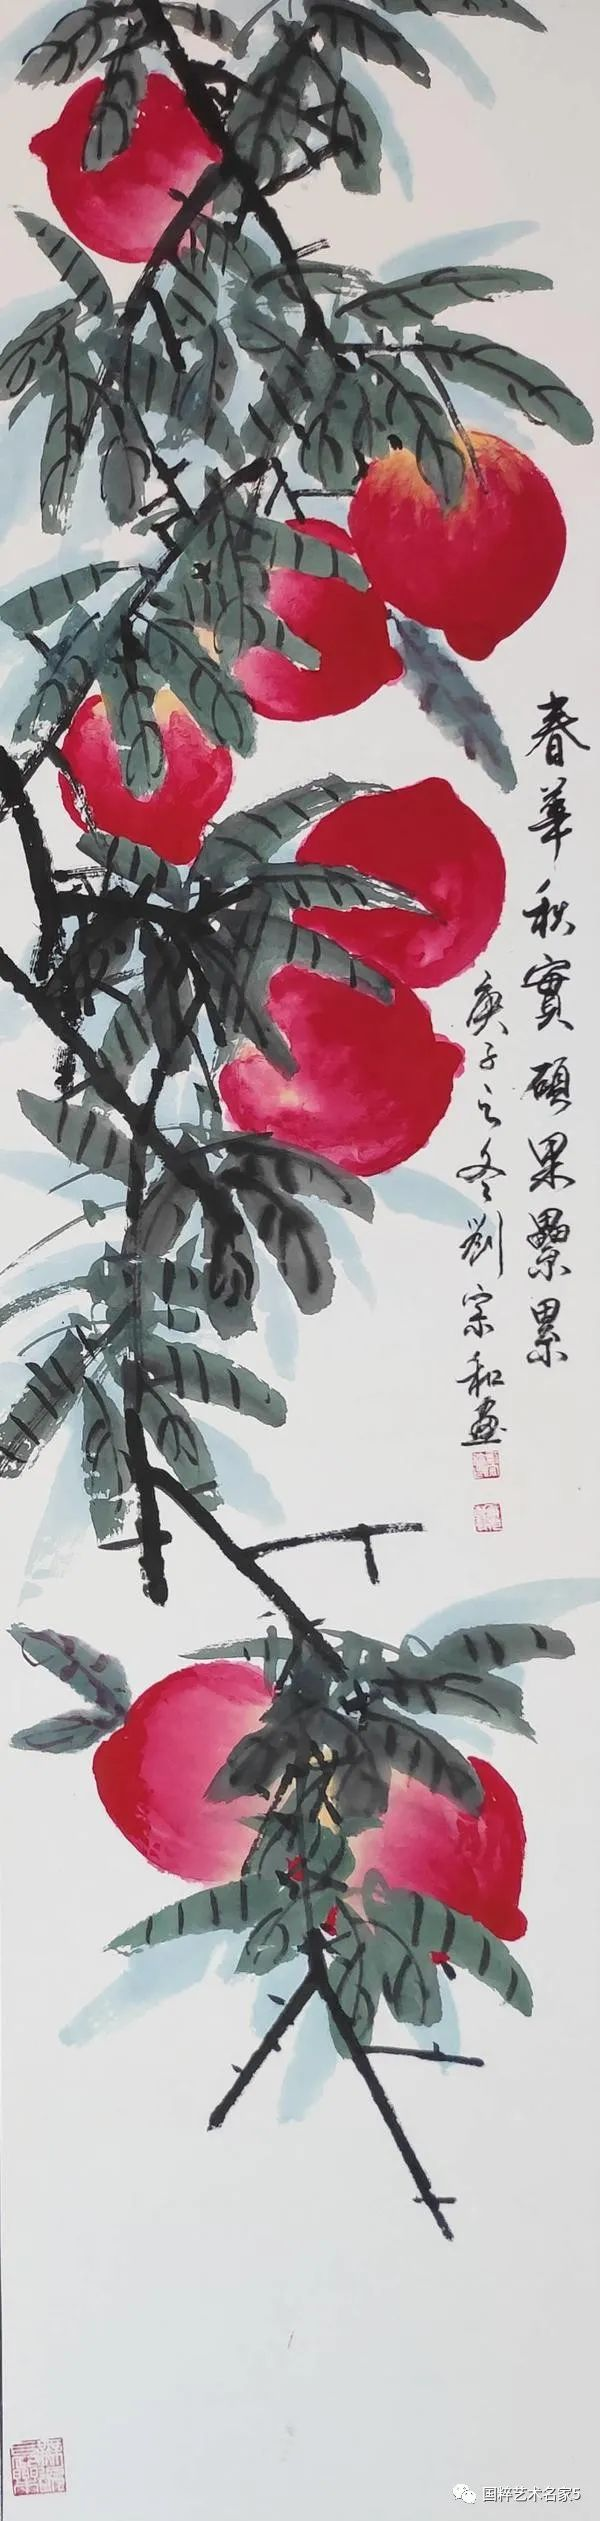 春華秋實碩果纍累
庚子之冬劉宗和畫
国粹艺术名家5